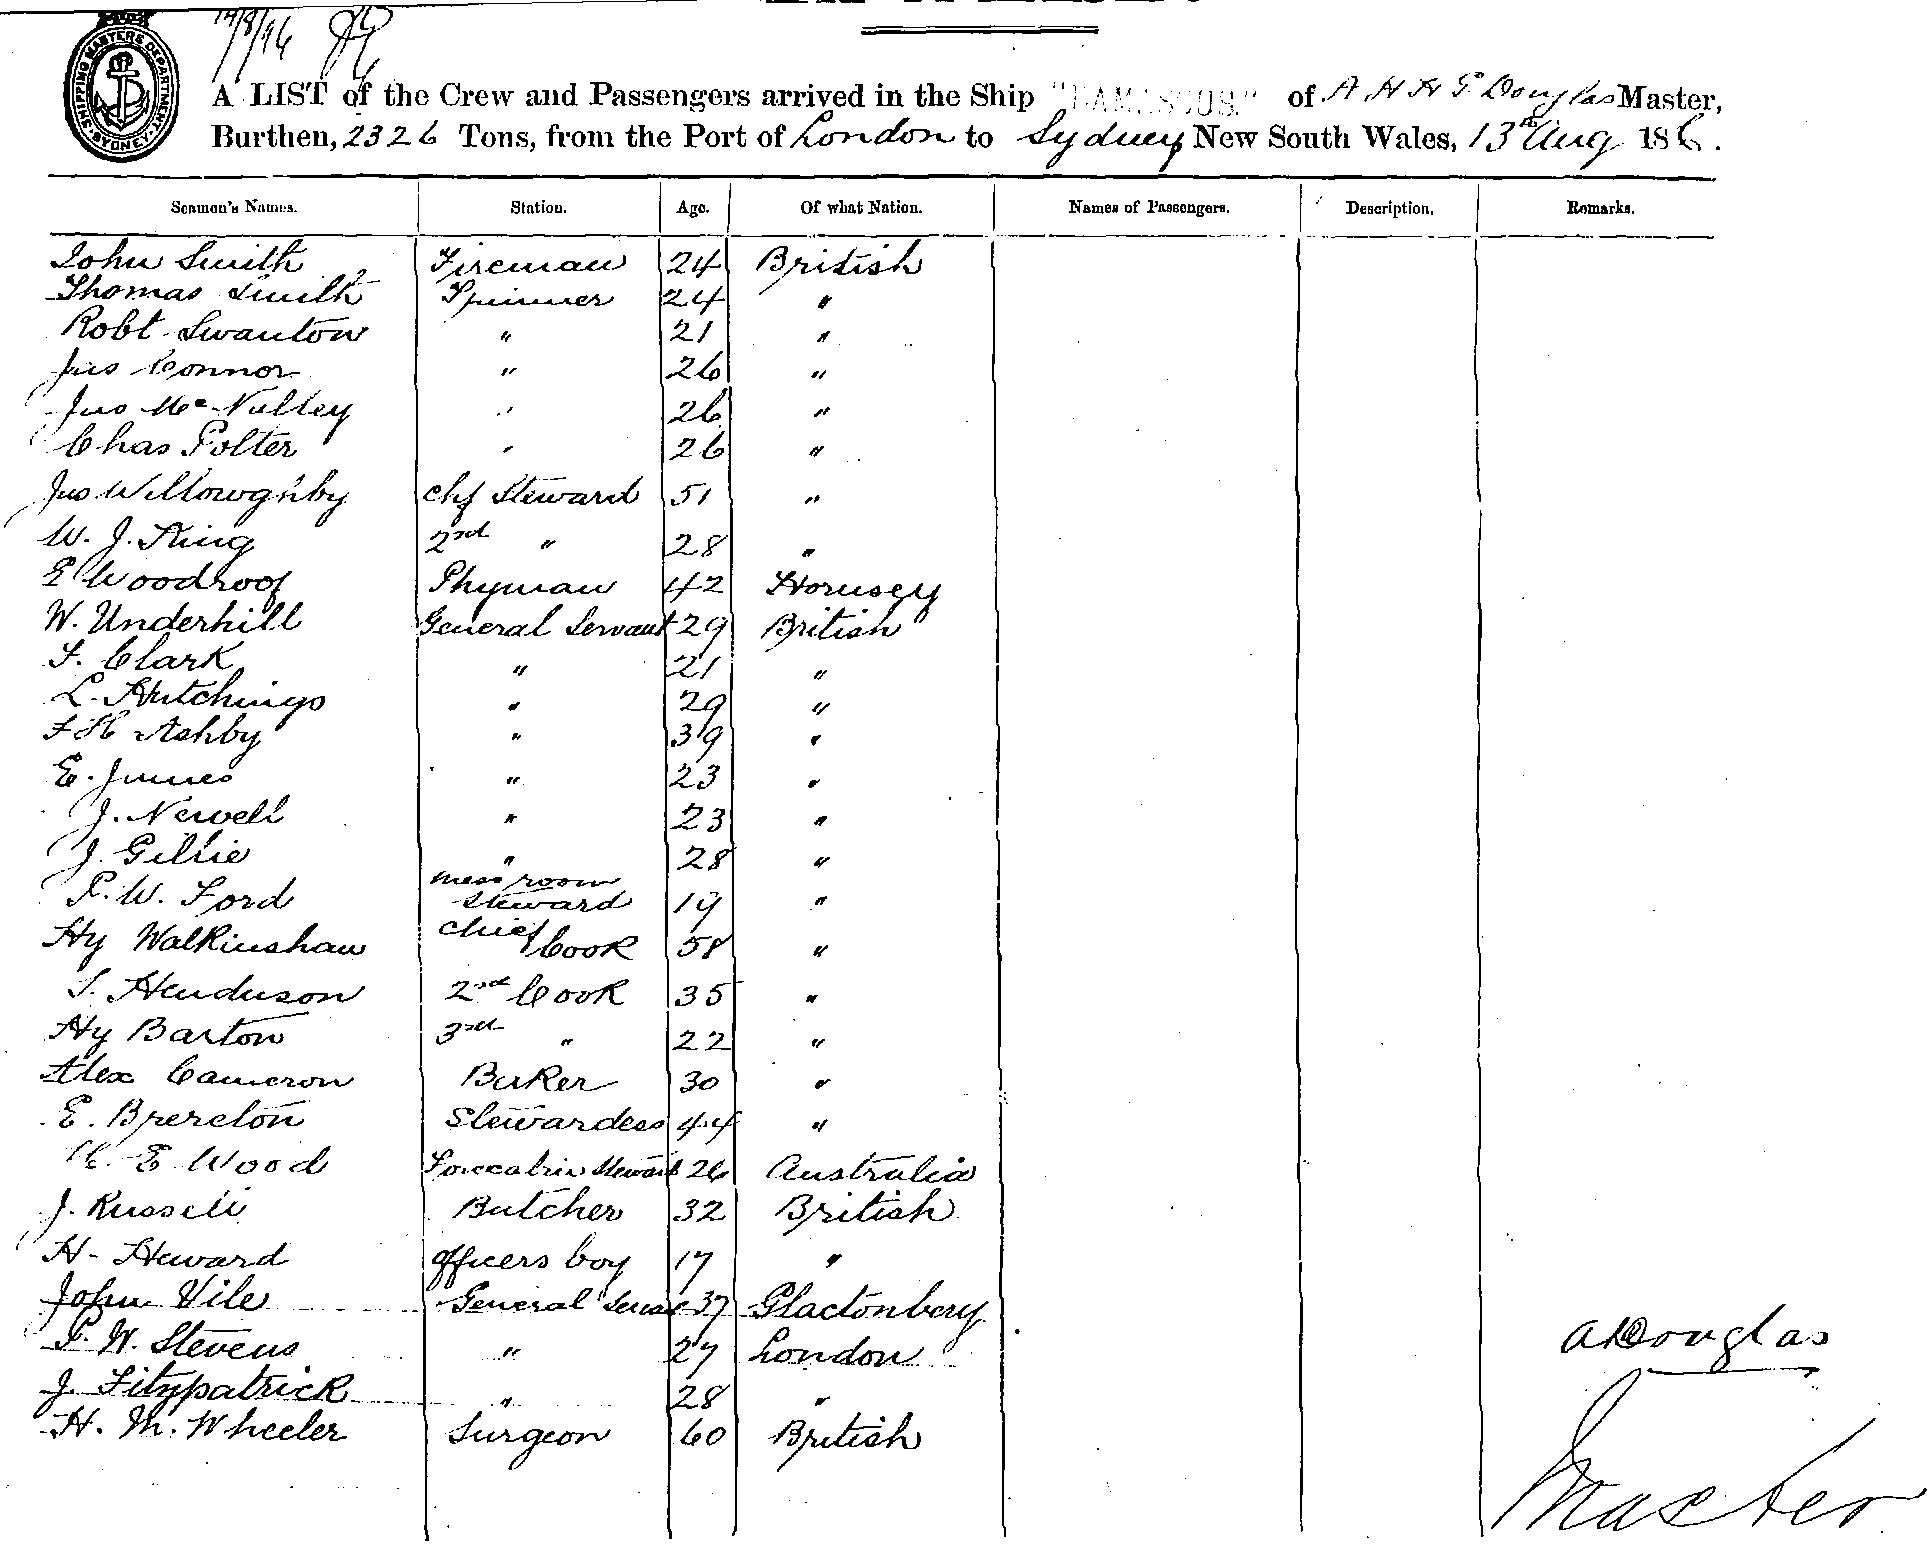 14/8/96
SHIPPING MASTERS DEPARTMENT SYDNEY
A LIST of the Crew and Passengers arrived in the Ship "DAMASCUS" of A H H G Douglas Master,
Burthen, 2326 Tons, from the Port of London to Sydney New South Wales, 13th Aug 18
Seamen's Names. Station. Age. Of what Nation. Names of Passengers. Description. Remarks.
John Smith Fireman 24 British
Thomas Smith Trimmer 24 "
Robt Swanton " 21 "
Jas Connor " 26 "
Jas McNulley " 26 "
Chas Potter " 26 "
Jas Willowghby chf Steward 51 "
W. J. King 2nd " 28 "
E Woodroof 42 Hornsey
W. Underhill General Servant 29 British
F. Clark " 21 "
L. Hutchings " 29 "
F H Ashby " 39 "
E. " 23 "
J. Newell " 23 "
J. Gillie " 28 "
P. W. Ford mess room steward 19 "
Hy Walkinshaw chief Cook 58 "
S. Henderson 2nd Cook 35 "
Hy Barton 3rd " 22 "
Alex Cameron Baker 30 "
E. Brereton Stewardess 44 "
E Wood Forecabin Steward 26 Australia
J. Russell Butcher 32 British
H. Heward officers boy 17 "
John Vile General Servant 37 Glactonbery
P. W. Stevens " 27 London
J. Fitzpatrick " 28 "
H. M. Wheeler Surgeon 60 British
A Douglas
Master